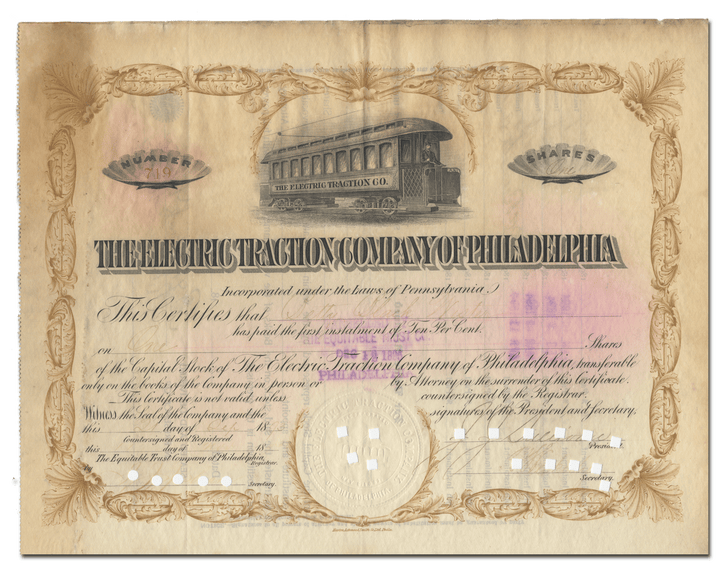 NUMBER
719
SHARES
THE ELECTRIC TRACTION CO.
THE ELECTRIC TRACTION COMPANY OF PHILADELPHIA
Incorporated under the Laws of Pennsylvania.
This Certifies that
has paid the first instalment of Ten Per Cent.
on Shares
of the Capital Stock of The Electric Traction Company of Philadelphia, transferable
only on the books of the Company in person or by Attorney on the surrender of this Certificate.
This Certificate is not valid unless countersigned by the Registrar.
Witness the Seal of the Company and the signatures of the President and Secretary.
this day of 18
Countersigned and Registered
this day of 18
The Equitable Trust Company of Philadelphia,
Registrar.
Secretary.
President.
Secretary.